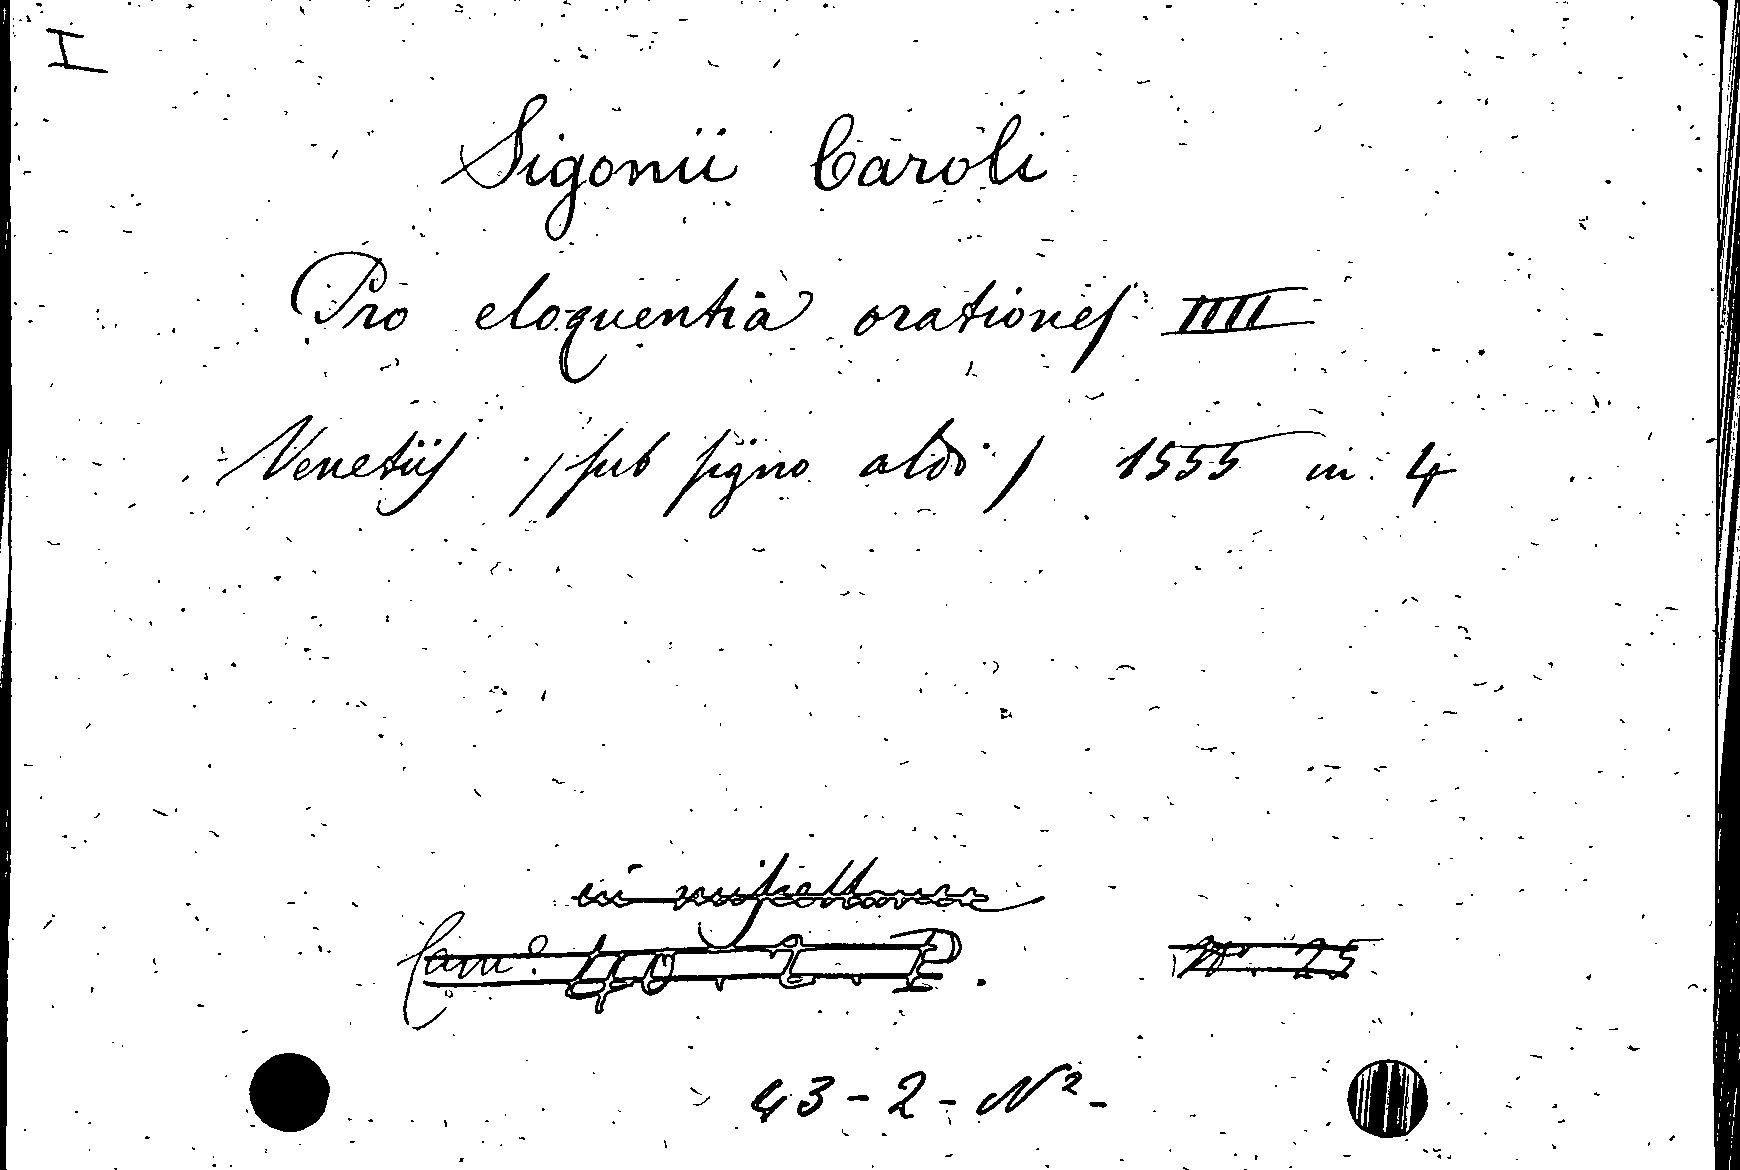 I
Sigonii Caroli
Pro eloquentia orationes IIII
Venetiis /sub signo aldi/ 1555 in 4
in miscellanea
Cam.ª 40. 2. P. N. 25
43-2-N²-